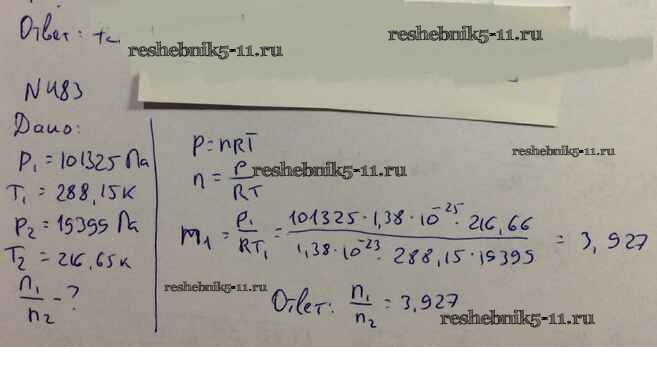 Ответ:
reshebnik5-11.ru
reshebnik5-11.ru
N483
Дано:
P₁ = 101325 Па
T₁ = 288,15 К
P₂ = 19399 Па
T₂ = 216,65 К
n₁/n₂ - ?
P = nRT
reshebnik5-11.ru
n = P/RT
reshebnik5-11.ru
m₁ = P₁/RT₁ = 101325 · 1,38 · 10⁻²⁵ · 216,66 / 1,38 · 10⁻²³ · 288,15 · 19399 = 3,927
reshebnik5-11.ru
Ответ: n₁/n₂ = 3,927
reshebnik5-11.ru